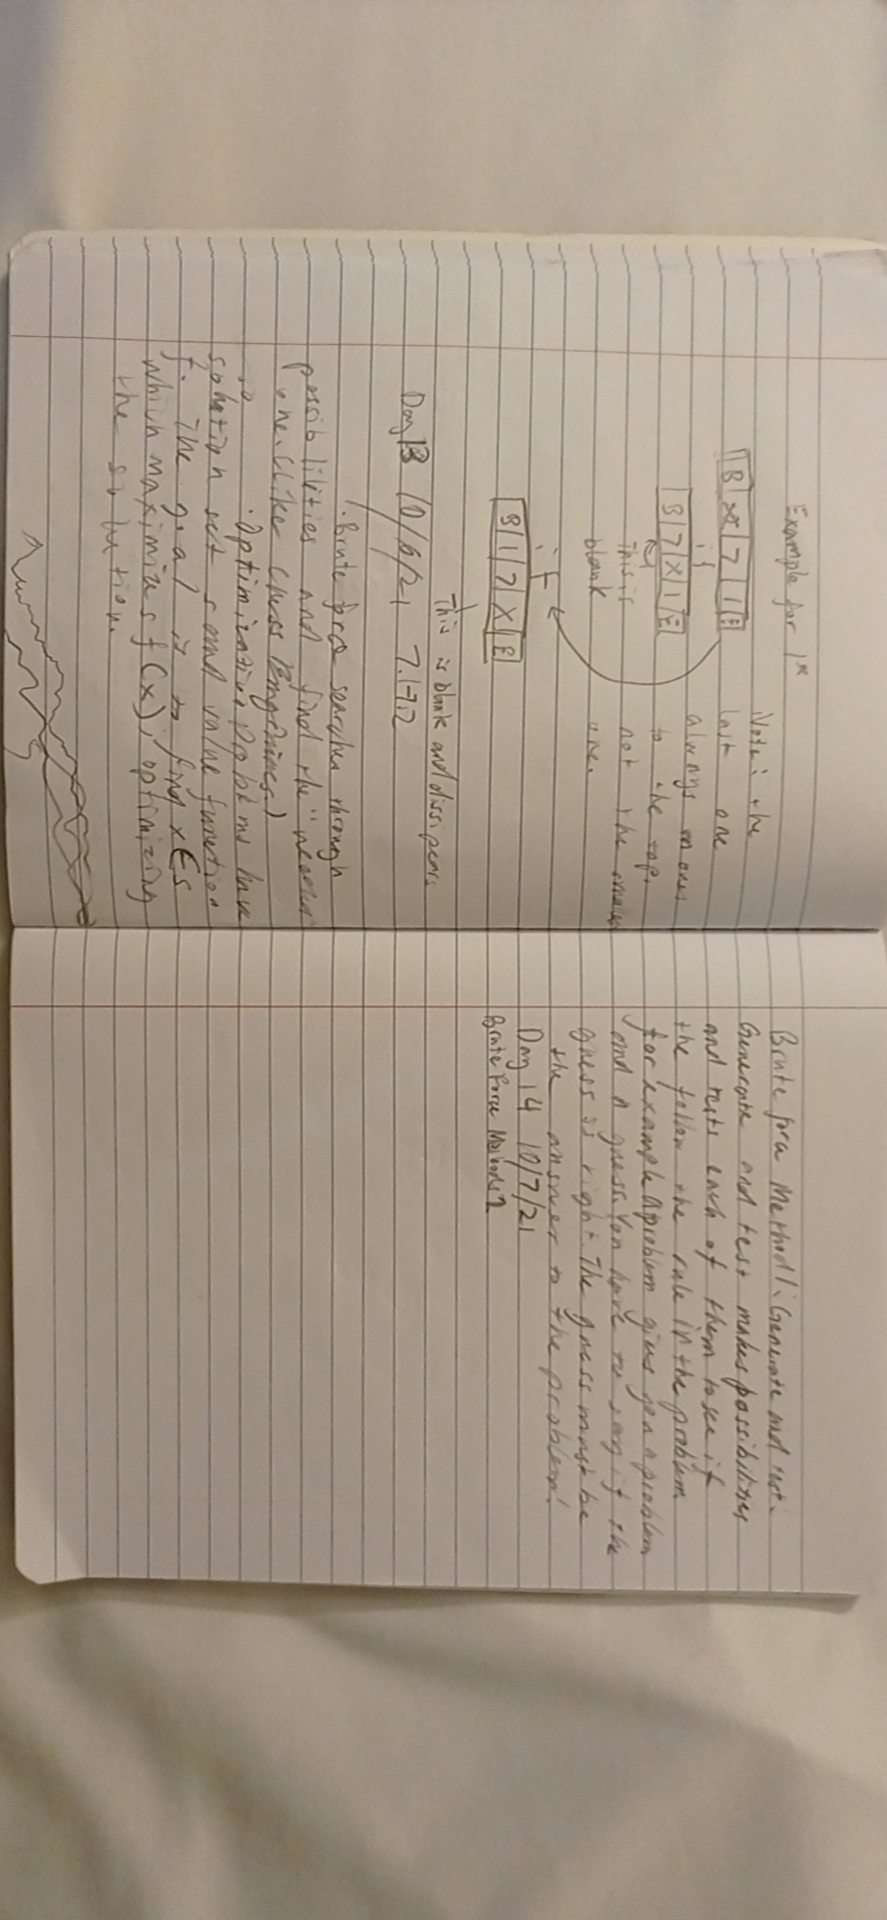 Example for 1st
Note: the
last one
always moves
to the top.
not the
one.
B X 7 1 E
is
B 7 X 1 E
This is
blank
B 1 7 X E
This is blank and dissipears
Day 13 10/6/21 7.1-7.2
1. Brute searches through
possibilities and find the
one. (like class
Optimization problems have
solution set s and value function
f. The goal is to find x∈s
which maximizes f(x); optimizing
the solution.
Brute Method 1: Generate and test.
Generate and test makes possibilities
and tests each of them to see if
the follow the rule in the problem.
for example A problem gives you a problem
and a guess. You have to say if the
guess is right. The guess must be
the answer to the problem!
Day 14 10/7/21
Brute Force Methods 2